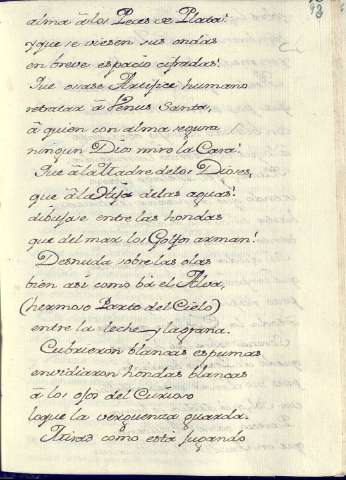 alma à los Peces de Plata!
y que se viesen sus ondas
en breve espacio cifradas!
Que osase Artifice humano
retratar à Venus Santa,
à quien con alma segura
ningun Dios miro la Cara!
Que à la Madre de los Dioses,
que à la Hija de las aguas!
dibujase entre las hondas
que del mar los Golfos arman!
Desnuda sobre las olas
bien asi como bà el Alva,
(hermoso Parto del Cielo)
entre la leche, y la grana.
Cubrieron blancas espumas
envidiaron hondas blancas
à los ojos del Curioso
lo que la verguenza guarda.
Miras como està jugando